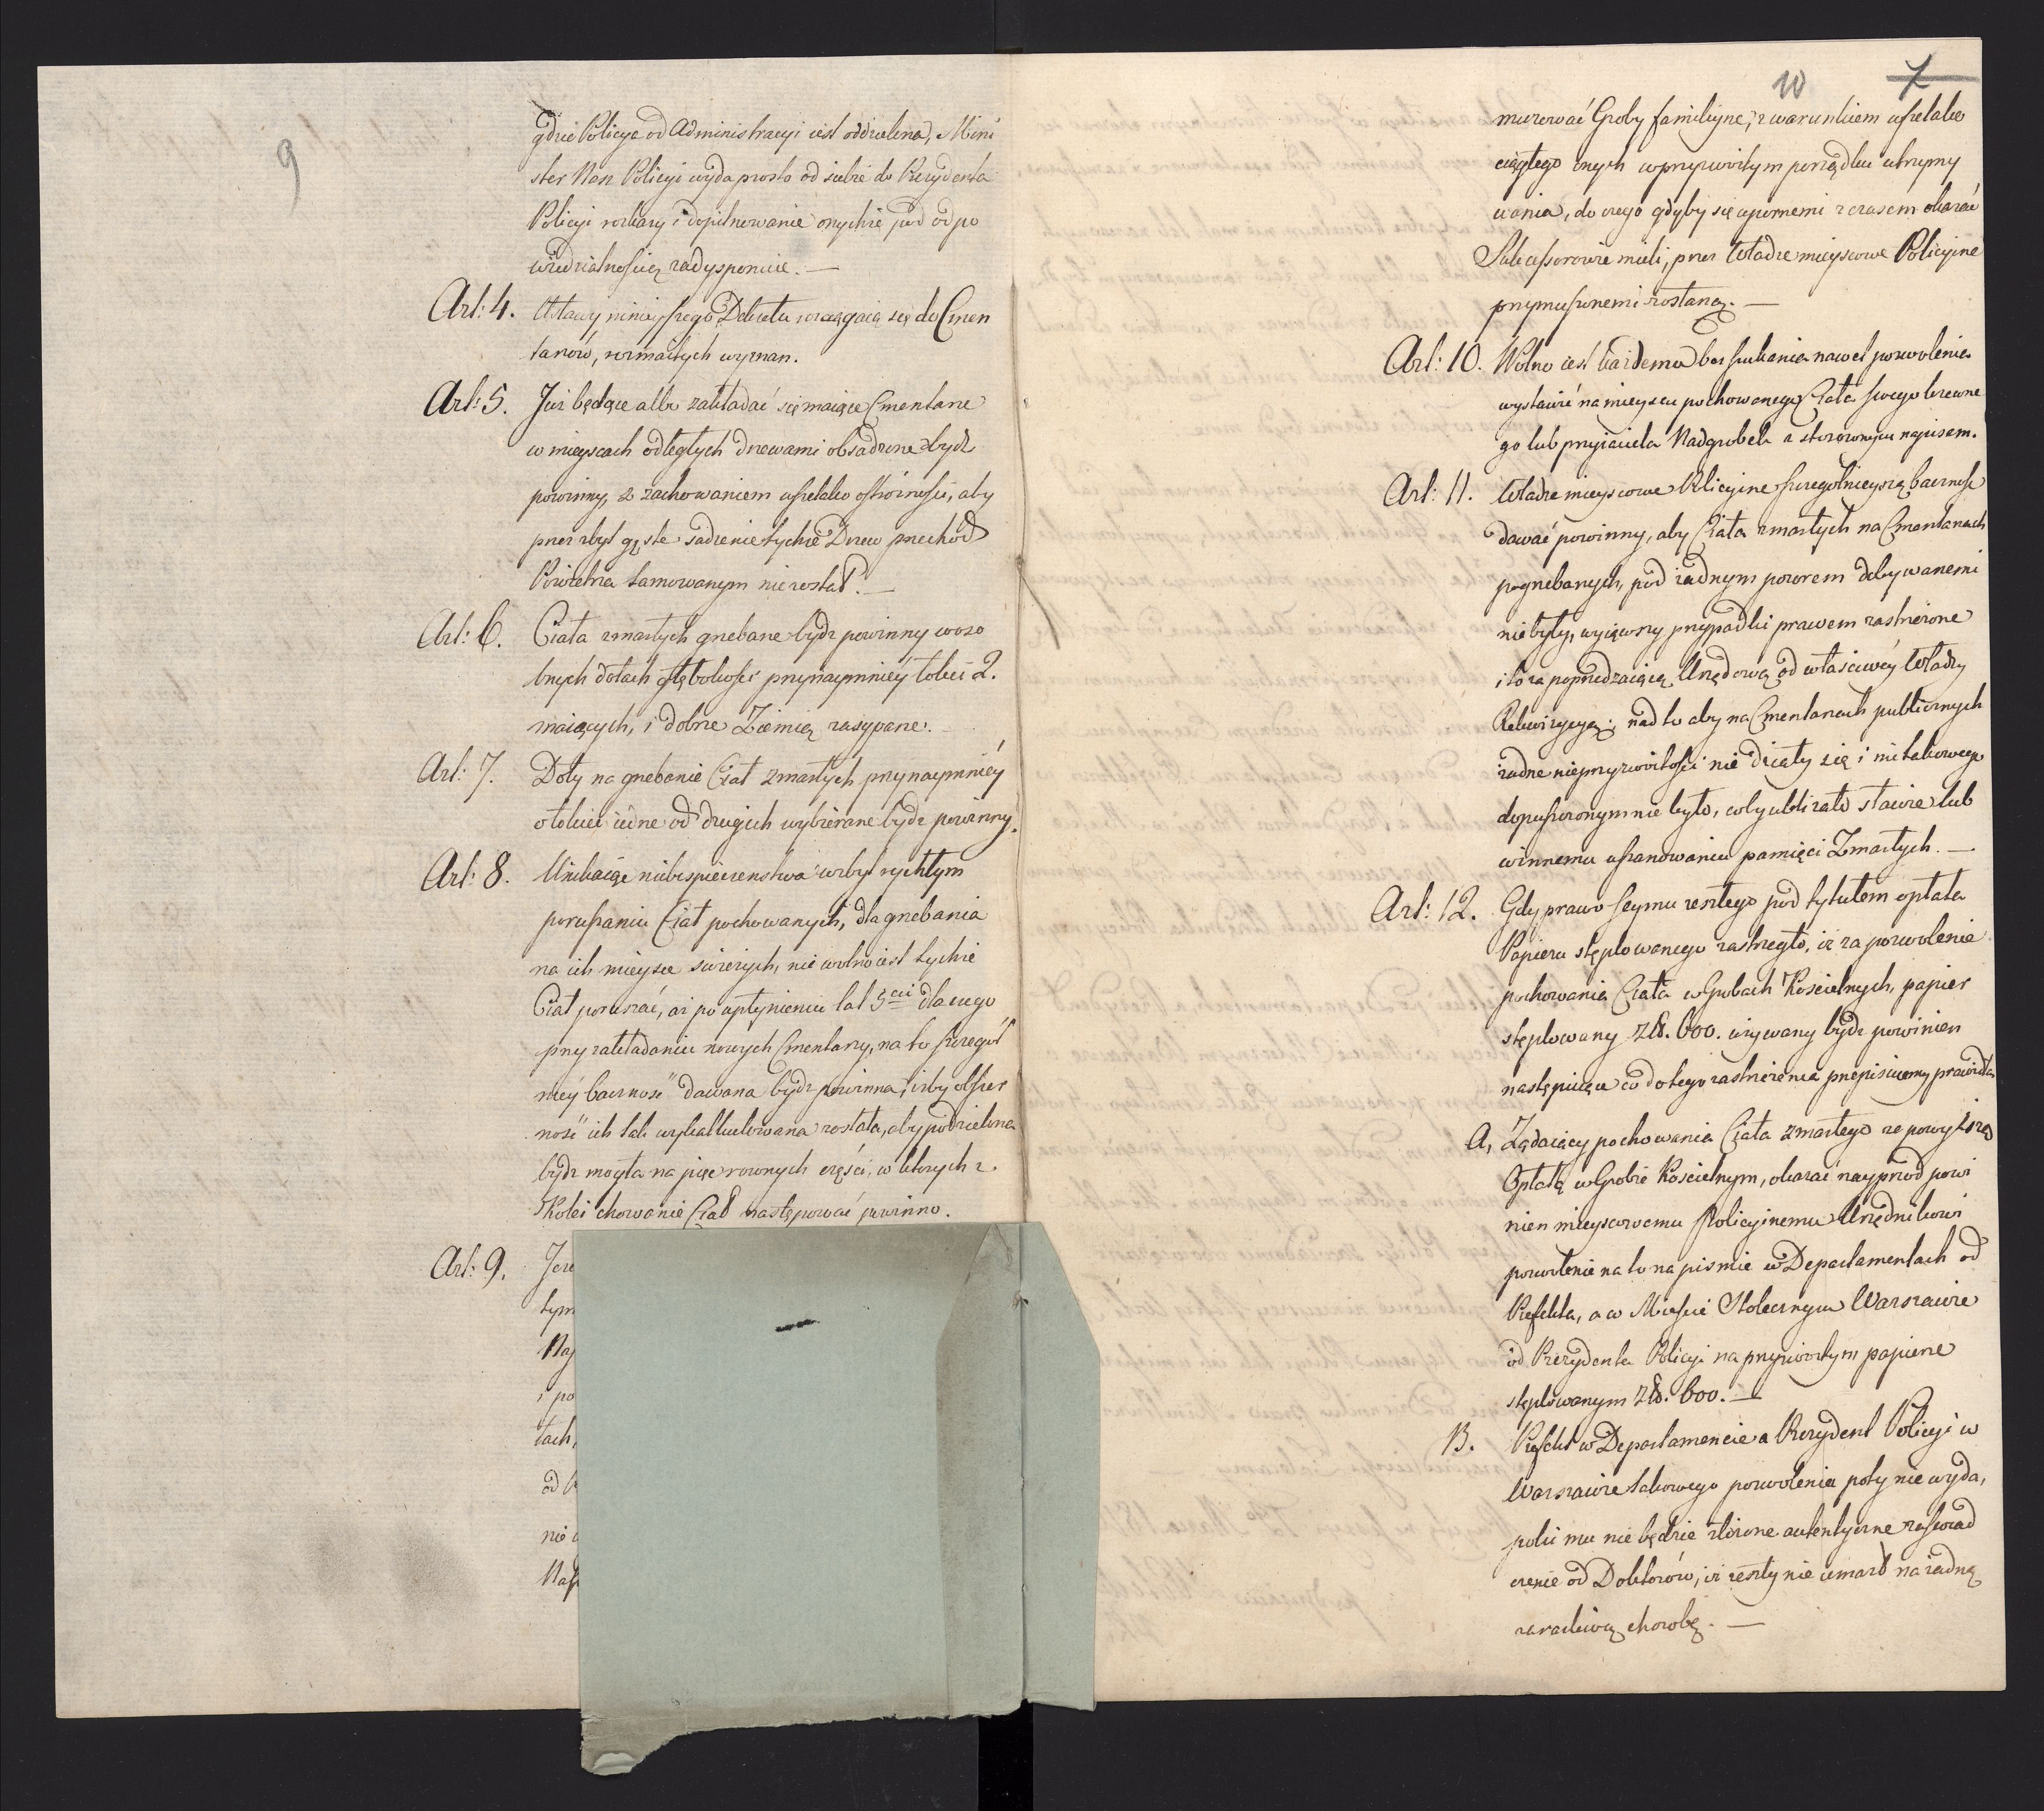 9
gdzie Policya od Administracyi iest oddzielona, Mini
ster Nasz Policyi wyda prosto od siebie do Prezydenta
Policyi rozkazy i dopilnowanie onychże pod odpo
wiedzialnością zadysponuie. —
Art: 4. Ustawy ninieyszego Dekretu rozciągaią się do Cmen
tarzow, rozmaitych wyznan.
Art: 5. Już będące albo zakładać się maiące Cmentarze
w mieyscach odległych drzewami obsadzone bydz
powinny, z zachowaniem wszelako ostrożności, aby
przez zbyt gęste sadzenie tychże Drzew przechód
Powietrza tamowanym nie został. —
Art: 6. Ciała zmarłych grzebane bydz powinny w oso
bnych dołach głębokości przynaymniéy łokci 2.
maiących, i dobrze Ziemią zasypane. —
Art: 7. Doły na grzebanie Ciał zmarłych przynaymniéy
o łokieć iedne od drugich wybierane bydz powinny.
Art: 8. Unikaiąc niebespieczenstwa w zbyt rychłym
poruszaniu Ciał pochowanych, dla grzebania
na ich mieysce swieżych, nie wolno iest tychże
Ciał poruszać, aż po upłynieniu lat 5ciu dla czego
przy zakładaniu nowych Cmentarzy, na to szczegól
niéy baczność dawana bydz powinna, iżby obszer
ność ich tak wykalkulowana została, aby podzielona
bydz mogła na pięc rownych części, w których z
Kolei chowanie Ciał następować powinno.
Art: 9. Jeze
tym
Nay
i po
łach,
od
nie
Nasz
10 7
murować Groby familiyne, z warunkiem wszelako
ciągłego onych w przyzwoitym porządku utrzymy
wania, do czego gdyby się upornemi z czasem okazać
Sukcessorowie mieli, przez Władze mieyscowe Policyine
przymuszonemi zostaną. —
Art: 10. Wolno iest każdemu bez szukania nawet pozwolenia
wystawić na mieyscu pochowanego Ciała swego krewne
go lub przyiaciela Nadgrobek z stosownym napisem.
Art: 11. Władze mieyscowe Policyine szczególnieyszą baczność
dawać powinny, aby Ciała zmarłych na Cmentarzach
pogrzebanych, pod żadnym pozorem dobywanemi
nie były, wyiąwszy przypadki prawem zastrzeżone
i to za poprzedzaiącą Urzędową od właściwéy Władzy
Rekwizycyą; nad to aby na Cmentarzach publicznych
żadne nieprzyzwoitości nie działy się i nic takowego
dopuszczonym nie było, coby ubliżało sławie lub
winnemu uszanowaniu pamięci Zmarłych. —
Art: 12. Gdy prawo Seymu zeszłego pod tytułem opłata
Papieru stęplowanego zastrzegło, iż za pozwolenie
pochowania Ciała w Grobach Kościelnych, papier
stęplowany Zł. 600. używany bydz powinien
następuiące co do tego zastrzeżenia przepisuiemy prawidła
A, Żądaiący pochowania Ciała zmarłego za powyższą
Opłatą w Grobie Kościelnym, okazać nayprzód powi
nien mieyscowemu Policyinemu Urzędnikowi
pozwolenie na to na pismie w Departamentach od
Prefekta, a w Mieście Stołecznym Warszawie
od Prezydenta Policyi na przyzwoitym papierze
stęplowanym Zł. 600. —
B. Prefekt w Departamencie a Prezydent Policyi w
Warszawie takowego pozwolenia poty nie wyda,
poki mu nie będzie złożone autentyczne zaświad
czenie od Doktorów, iż zeszły nie umarł na żadną
zaraźliwą chorobę. —